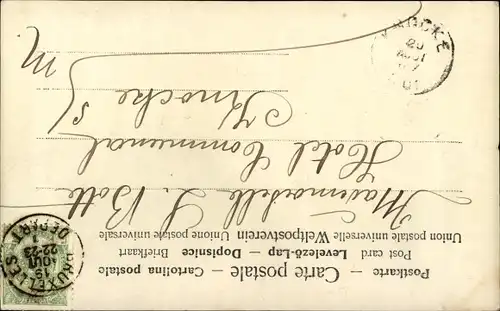 Postkarte — Carte postale — Cartolina postale
Post card — Levelező-Lap — Dopisnice — Briefkaart
Union postale universelle Weltpostverein Unione postale universale
BRUXELLES
19
AOUT
22-23
DEPART
Mademoiselle S. Bott
Hotel Communal
Knocke s/
m.
KNOCKE
20
AOUT